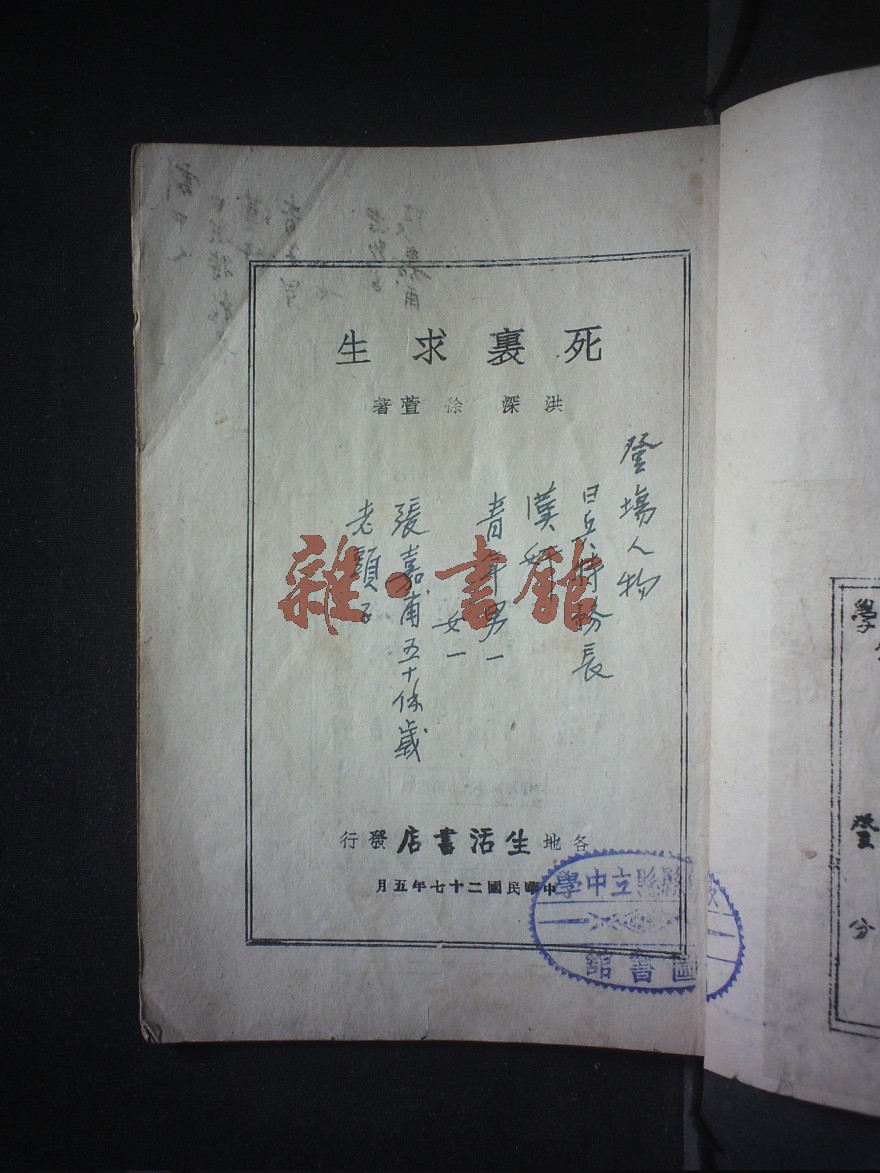 死裏求生
洪深 徐萱著
登場人物
日兵特務長
漢奸
青年男一
女一
張嘉甫五十餘歲
老頭子
雜·書館
各地生活書店發行
中華民國二十七年五月
縣立中學
圖書館
學
登
分